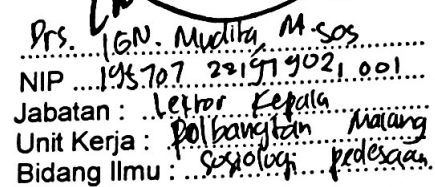 Drs. IGN. Mudita, M.sos
NIP ....195707 221979021 001
Jabatan : Lektor Kepala
Unit Kerja : Polbangtan Malang
Bidang Ilmu : Sosiologi pedesaan.